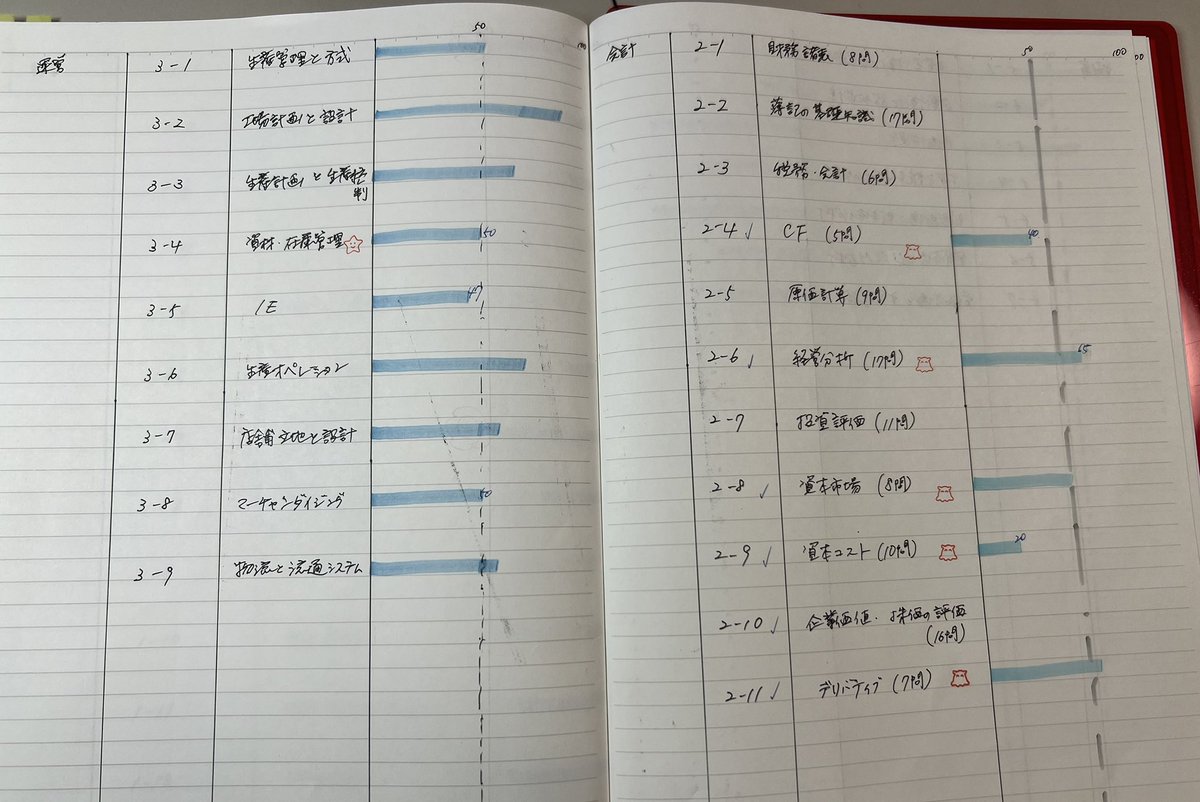 50
100
運営 3-1 生産管理と方式
3-2 工場計画と設計
3-3 生産計画と生産統
制
3-4 資材・在庫管理 50
3-5 IE 47
3-6 生産オペレーション
3-7 店舗立地と設計
3-8 マーチャンダイジング 50
3-9 物流と流通システム
50 100
00
会計 2-1 財務諸表 (8問)
2-2 簿記の基礎知識 (17問)
2-3 税務・会計 (6問)
2-4 ✓ CF (5問) 40
2-5 原価計算 (9問)
2-6 ✓ 経営分析 (17問) 65
2-7 投資評価 (11問)
2-8 ✓ 資本市場 (8問)
2-9 ✓ 資本コスト (10問) 20
2-10 ✓ 企業価値・株価の評価
(16問)
2-11 ✓ デリバティブ (7問)